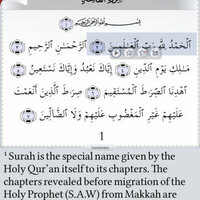 بِسْمِ اللَّهِ الرَّحْمَٰنِ الرَّحِيمِ
ٱلْحَمْدُ لِلَّهِ رَبِّ ٱلْعَٰلَمِينَ ٱلرَّحْمَٰنِ ٱلرَّحِيمِ
مَٰلِكِ يَوْمِ ٱلدِّينِ إِيَّاكَ نَعْبُدُ وَإِيَّاكَ نَسْتَعِينُ
ٱهْدِنَا ٱلصِّرَٰطَ ٱلْمُسْتَقِيمَ صِرَٰطَ ٱلَّذِينَ أَنْعَمْتَ
عَلَيْهِمْ غَيْرِ ٱلْمَغْضُوبِ عَلَيْهِمْ وَلَا ٱلضَّآلِّينَ
1
Comment
¹ Surah is the special name given by the
Holy Qur'an itself to its chapters. The
chapters revealed before migration of the
Holy Prophet (S.A.W) from Makkah are